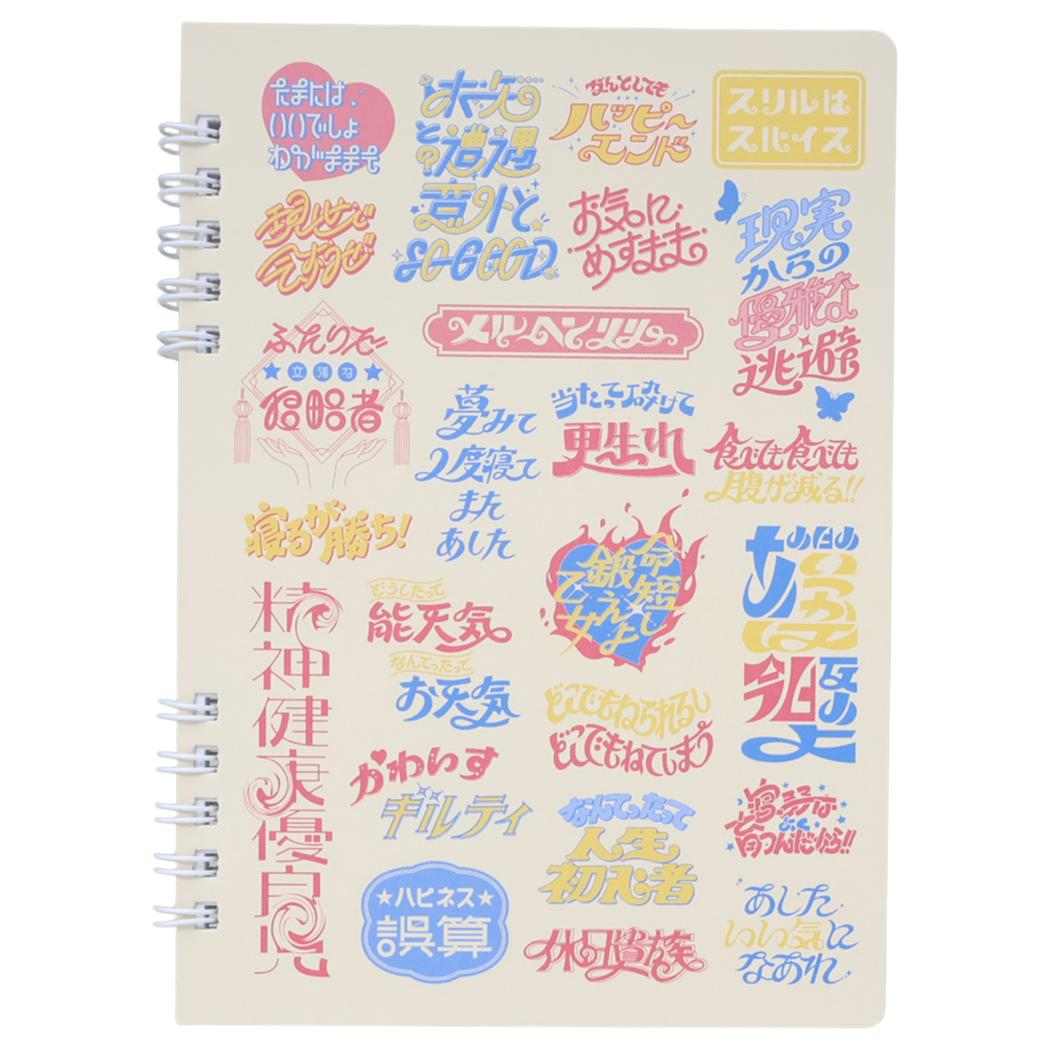 たまには、
いいでしょ
わがままで
未知
との遭遇
意外と
SO-GOOD
なんとしても
ハッピー
エンド
スリルは
スパイス
お気に
めすまま
現実
からの
優雅な
逃避
メルヘンリリー
ふたりで
侵略者
夢みて
2度寝て
また
あした
当たって砕けて
更生れ
食べても食べても
腹が減る!!
寝るが勝ち!
命短し
鍛えよ
乙女
精神健康優良児
どうしたって
能天気
なんてったって
お天気
どこでもねられるし
どこでもねてしまう
かわいす
ギルティ
なんてったって
人生
初心者
寝る子は
よく
育つんだから!!
ハピネス
誤算
休日貴族
あした
いい気に
なあれ